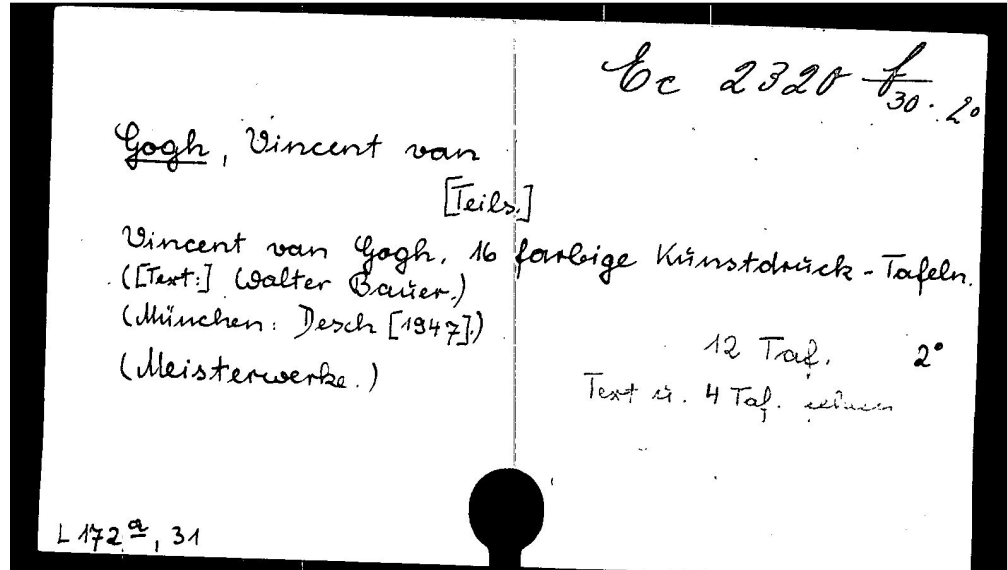 Ec 2320 f/30. 2°
Gogh, Vincent van
[Teils.]
Vincent van Gogh. 16 farbige Kŭnstdrŭck-Tafeln.
([Text:] Walter Baŭer.)
(Mŭnchen: Desch [1947].)
(Meisterwerke.)
12 Taf. 2°
Text ŭ. 4 Taf.
L 172 a, 31